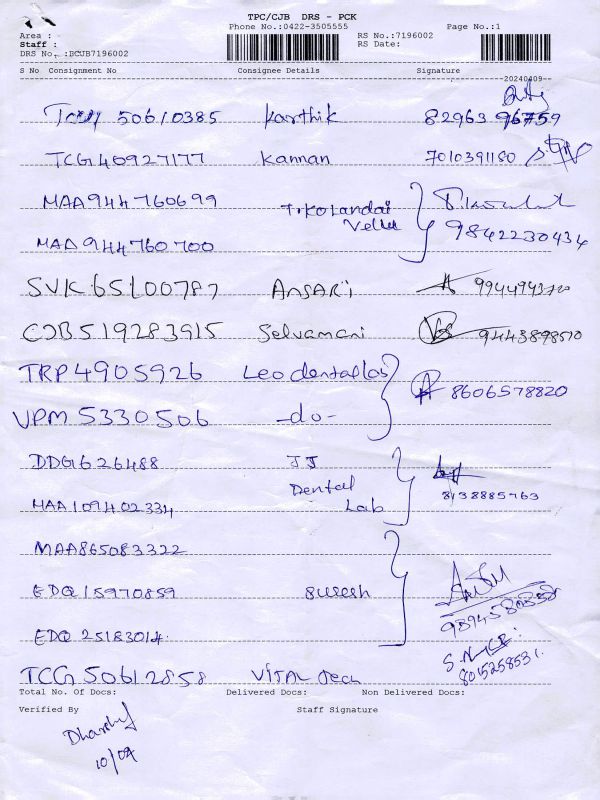 TPC/CJB DRS - PCK
Phone No.:0422-3505555 Page No.:1
Area :
Staff :
RS No.:7196002
RS Date:
DRS No. :BCUB7196002
S No Consignment No Consignee Details Signature
20240409
50610385 Karthik 82963 96759
TCG40927177 Kannan 7010391180
MAA944760699 T. Kolandai Vellu
MAA944760700 9842230434
SVK65100787 Ansari
CJB519283915 Selvamani 9443898510
TRP4905926 Leo dental lab 8606578820
VPM5330506 -do-
DDG1626488 JJ Dental Lab 8138885763
MAA109402334
MAA865083322
EDQ15970859 Suresh
EDQ25183014
8015258531
TCG50612858 VITAL Tech
Total No. Of Docs: Delivered Docs: Non Delivered Docs:
Verified By Staff Signature
10/04